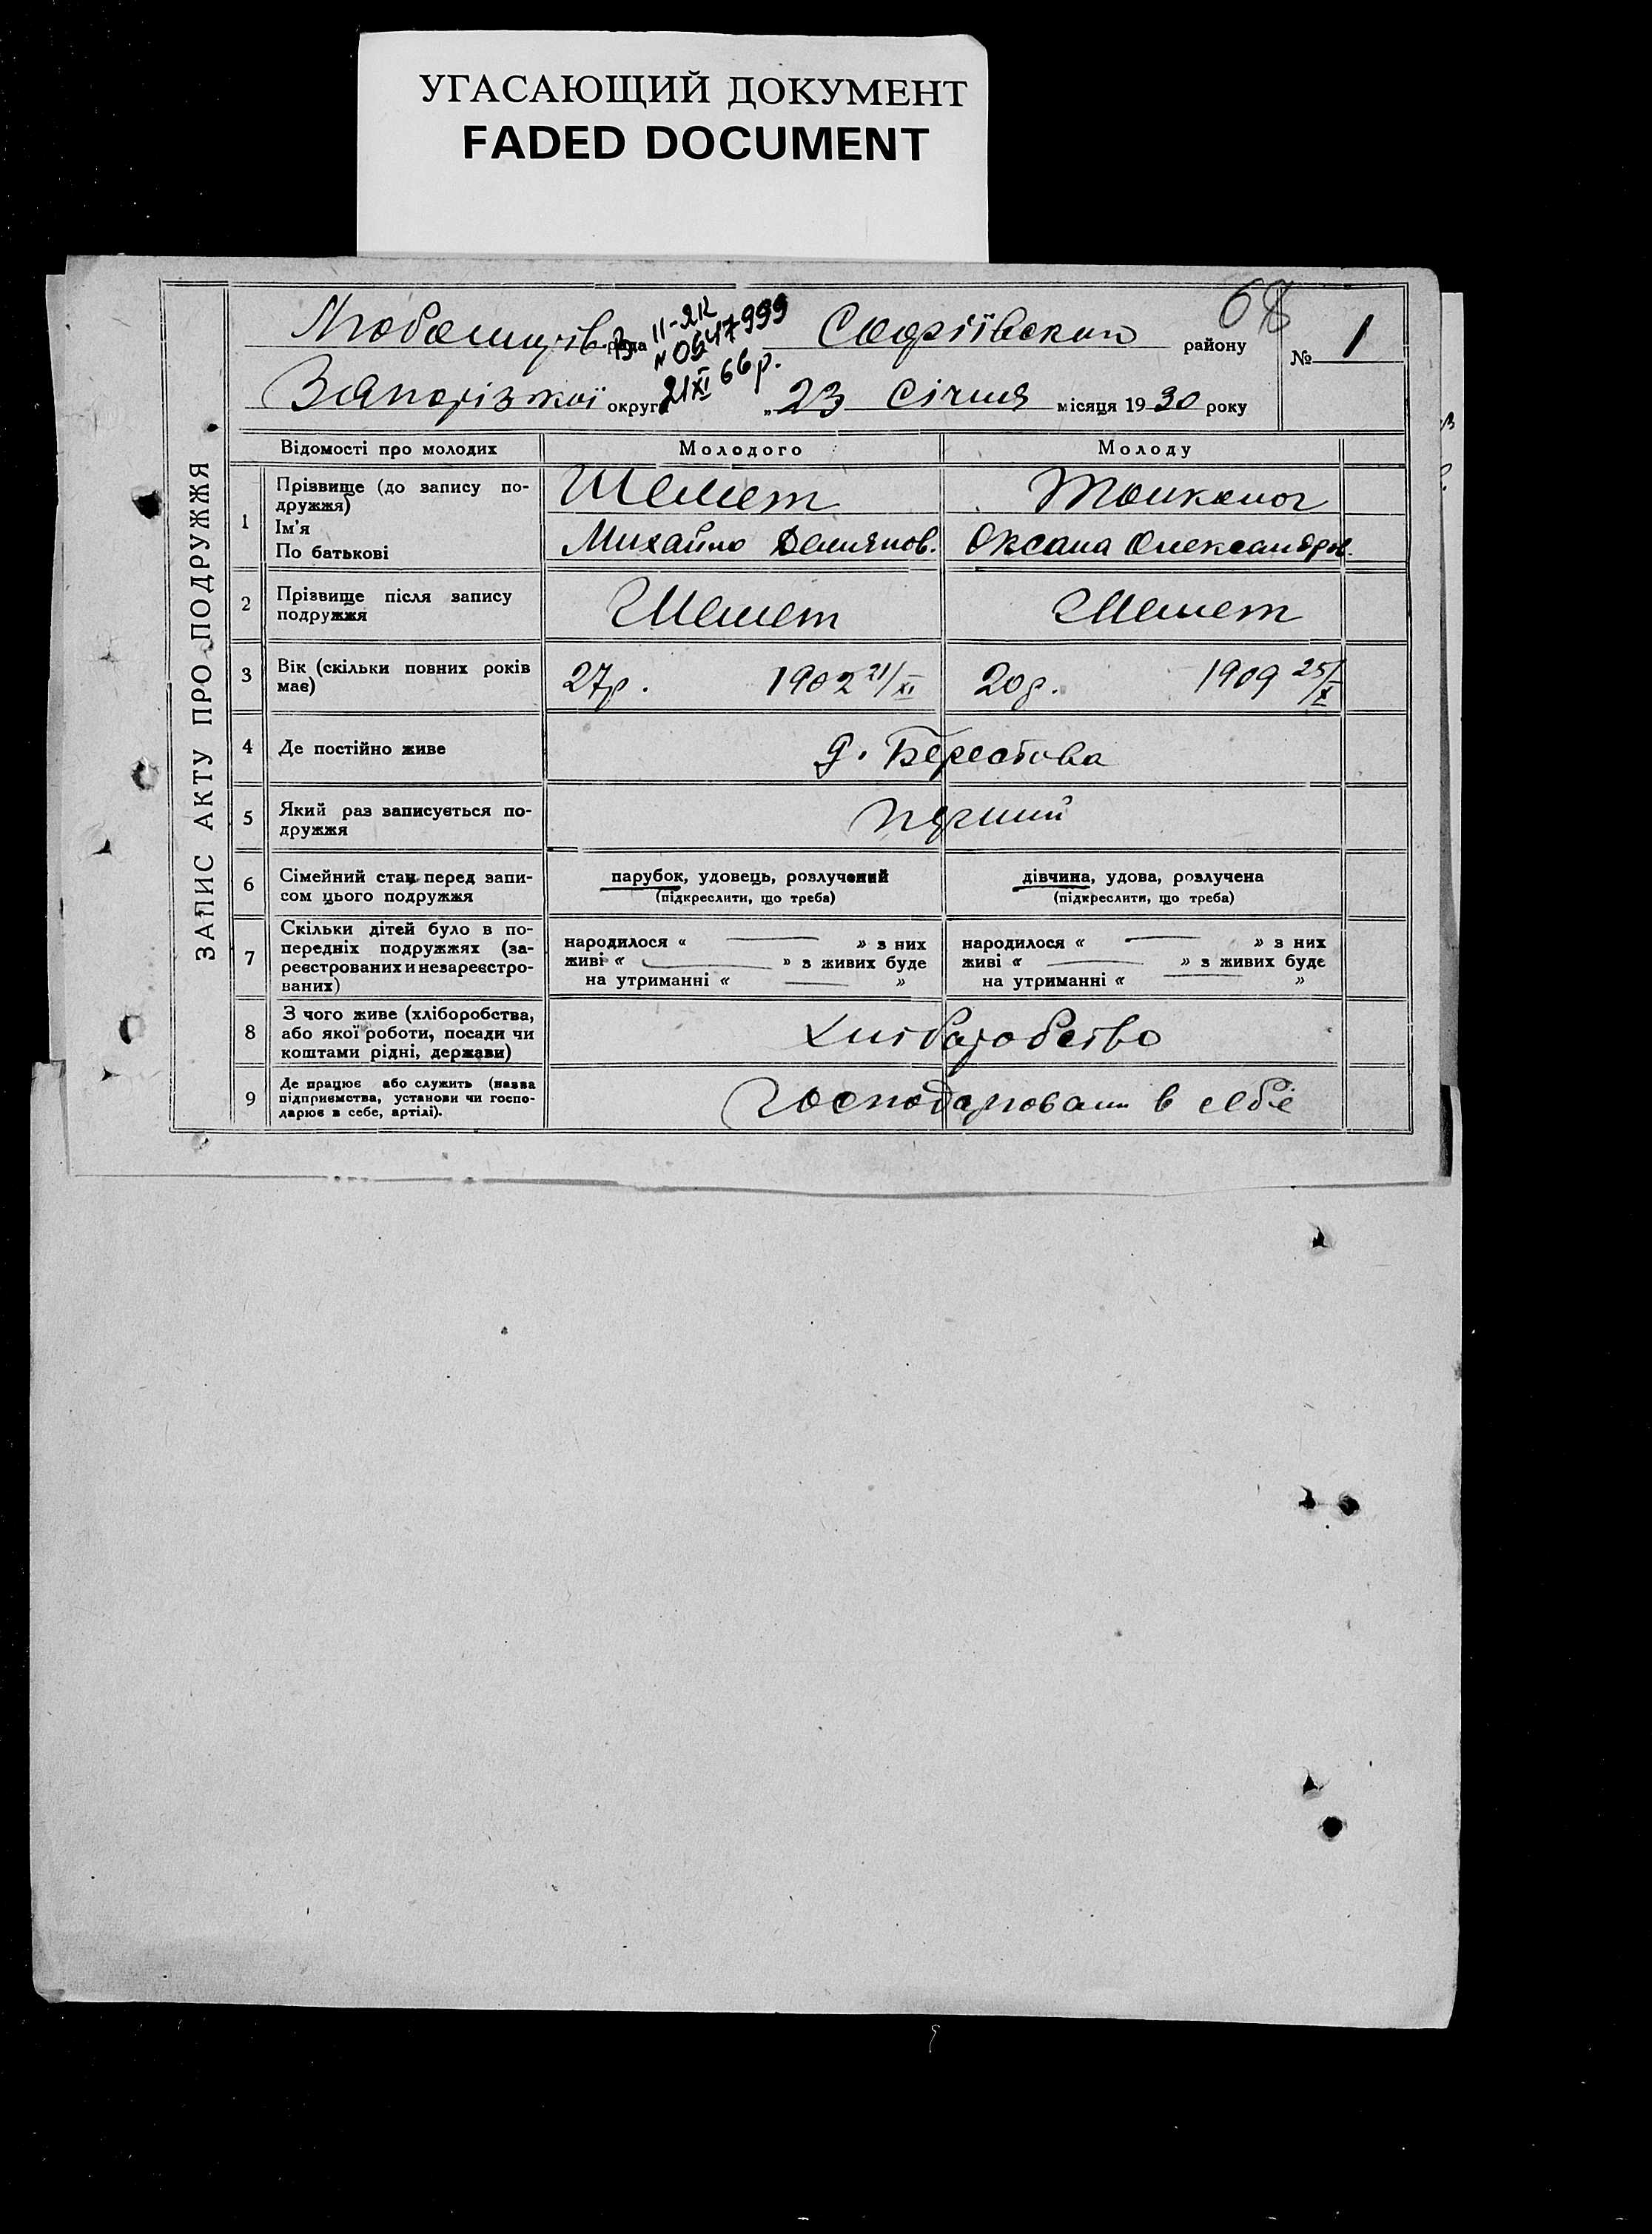 УГАСАЮЩИЙ ДОКУМЕНТ
FADED DOCUMENT
68
рада
II-ЯК
№ 0547999
21 XI 66 р.
Софіївский району
№ 1
Запорізкої округ
„23 Січня місяця 1930 року
ЗАПИС АКТУ ПРО ПОДРУЖЖЯ
Відомості про молодих Молодого Молоду
1 Прізвище (до запису по-
дружжя)
Ім'я
По батькові
Шемет
Михайло Демянов.
Тонконог
Оксана Олександров.
2 Прізвище після запису
подружжя
Шемет Шемет
3 Вік (скільки повних років
має)
27р. 1902 21/XI 20р. 1909 25/X
4 Де постійно живе
д. Берестова
5 Який раз записується по-
дружжя
перший
6 Сімейний стан перед запи-
сом цього подружжя
парубок, удовець, розлучений
(підкреслити, що треба)
дівчина, удова, розлучена
(підкреслити, що треба)
7 Скільки дітей було в по-
передніх подружжях (за-
реєстрованих и незареєстро-
ваних)
народилося « — » з них
живі « — » з живих буде
на утриманні « — »
народилося « — » з них
живі « — » з живих буде
на утриманні « — »
8 З чого живе (хліборобства,
або якої роботи, посади чи
коштами рідні, держави)
Хліборобство
9 Де працює або служить (назва
підприємства, установи чи госпо-
дарює в себе, артілі).
Господарювали в себе